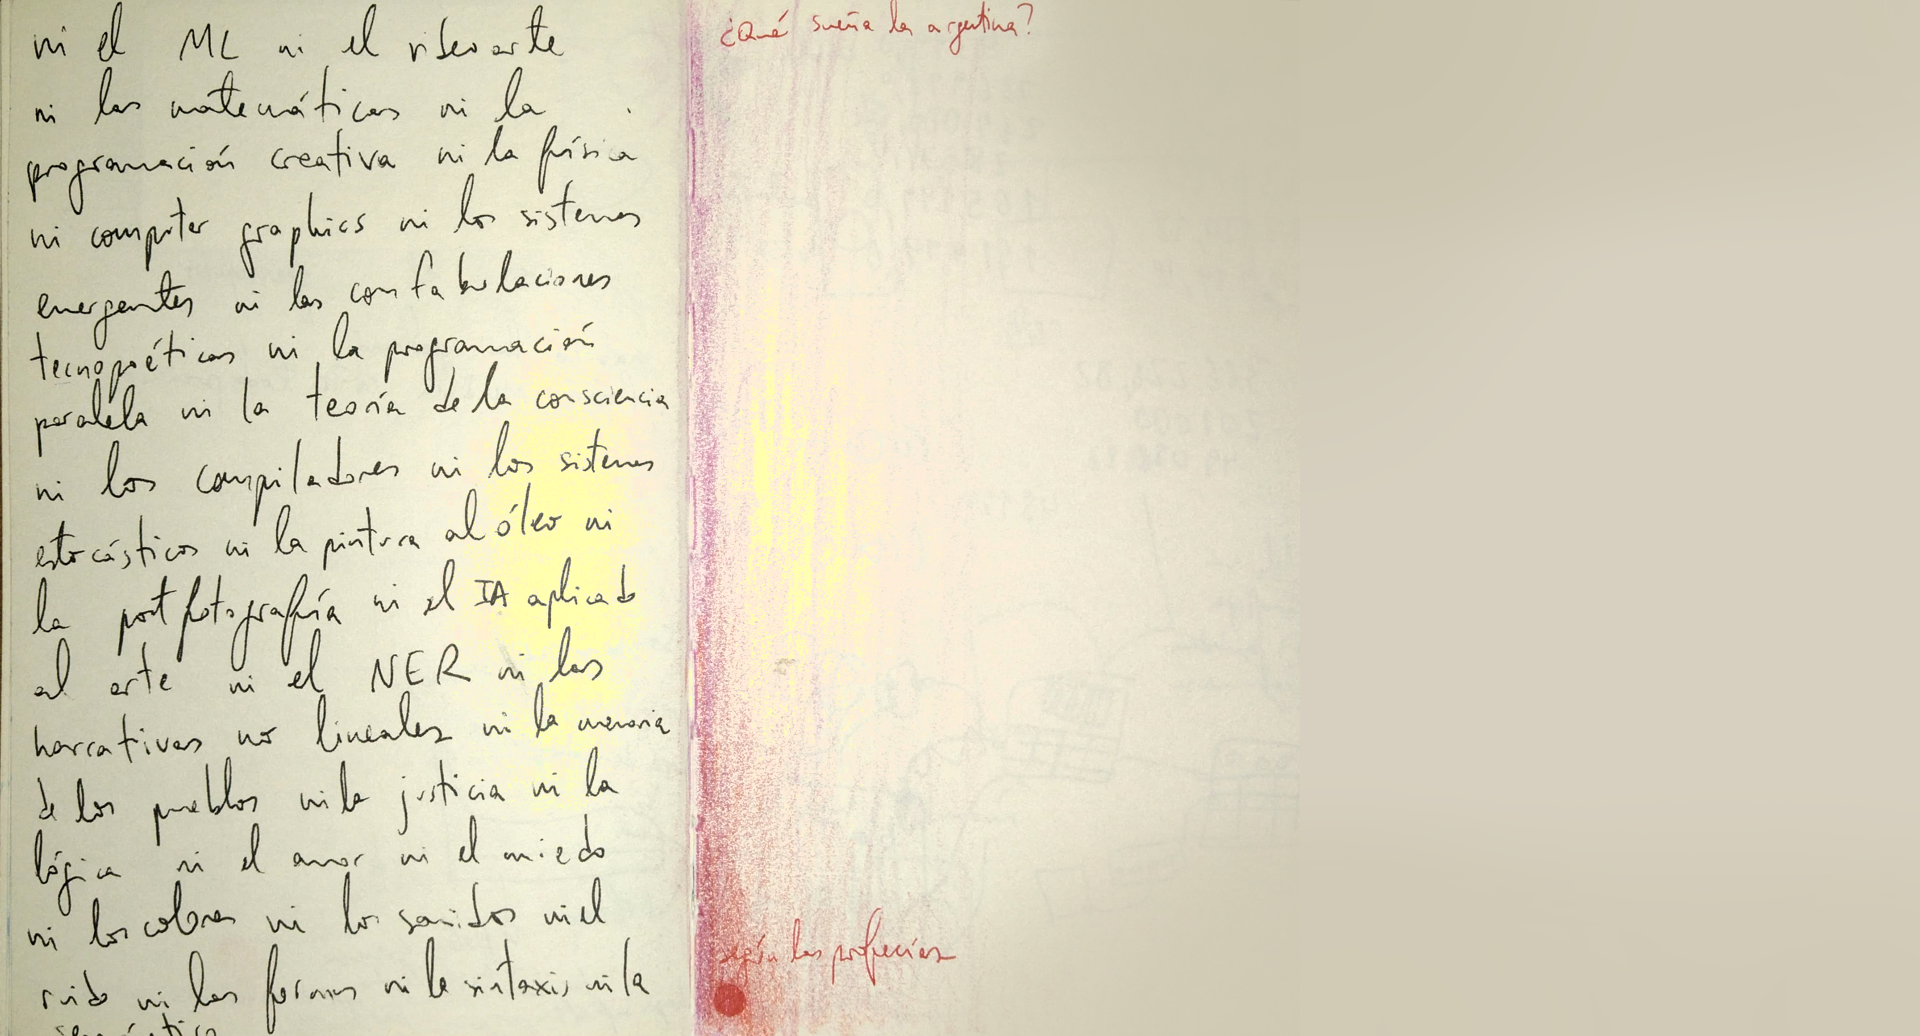 ni el ML ni el videoarte
ni las matemáticas ni la
programación creativa ni la física
ni computer graphics ni los sistemas
emergentes ni las confabulaciones
tecnopoéticas ni la programación
paralela ni la teoría de la consciencia
ni los compiladores ni los sistemas
estocásticos ni la pintura al óleo ni
la postfotografía ni el IA aplicado
al arte ni el NER ni las
narrativas no lineales ni la memoria
de los pueblos ni la justicia ni la
lógica ni el amor ni el miedo
ni los colores ni los sonidos ni el
ruido ni las formas ni la sintaxis ni la
semántica
¿Qué sueña la argentina?
según las profecías